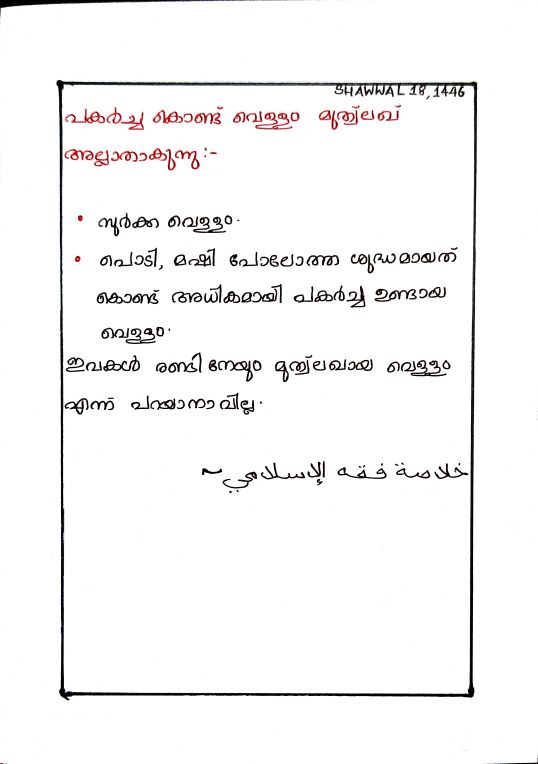 SHAWWAL 18, 1446
പകർച്ച കൊണ്ട് വെള്ളം മുത്വ്‌ലഖ്
അല്ലാതാകുന്നു:-
• സുർക്ക വെള്ളം.
• പൊടി, മഷി പോലോത്ത ശുദ്ധമായത്
കൊണ്ട് അധികമായി പകർച്ച ഉണ്ടായ
വെള്ളം.
ഇവകൾ രണ്ടിനേയും മുത്വ്‌ലഖായ വെള്ളം
എന്ന് പറയാനാവില്ല.
خلاصة فقه الإسلامي ~